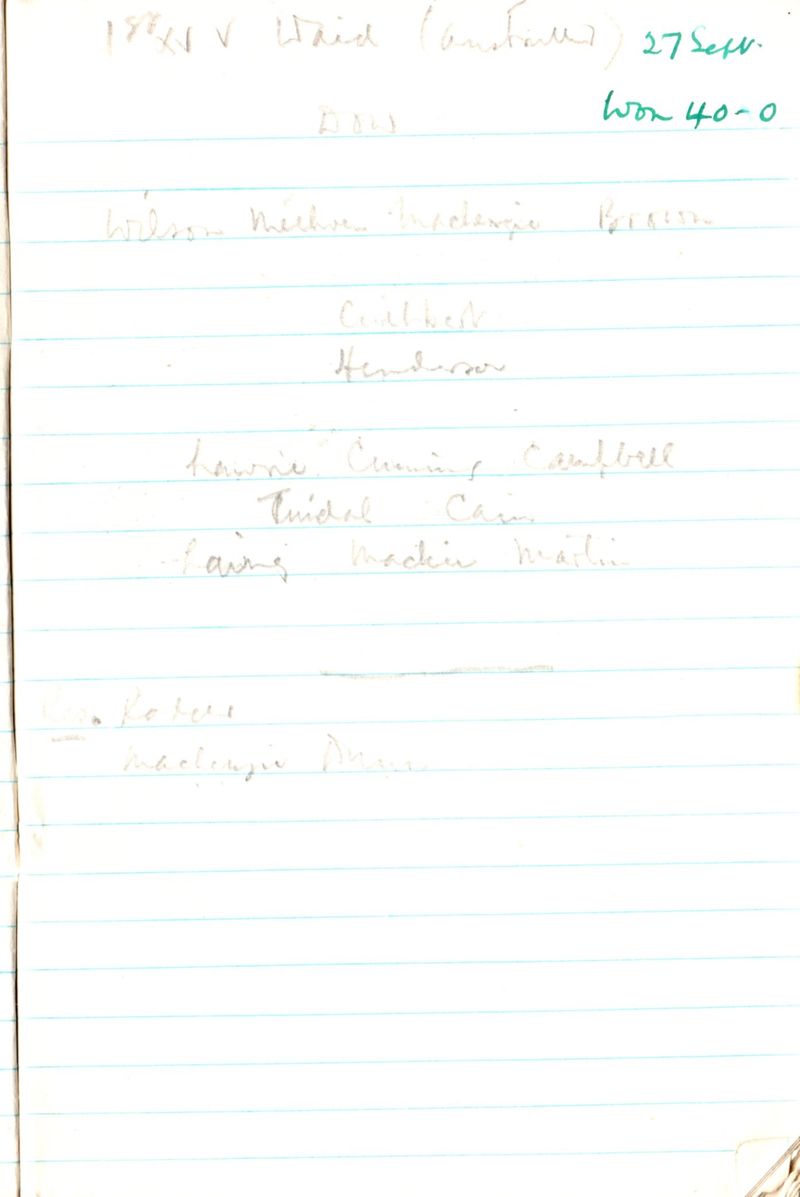 1st XV V Waid (Anstruther) 27 Sept.
Won 40-0
Dow
Wilson Methven Mackenzie Brown
Cuthbert
Henderson
Lawrie Cumming Campbell
Tindal Cairns
Laing Mackie Martin
Res. Rodger
Mackenzie